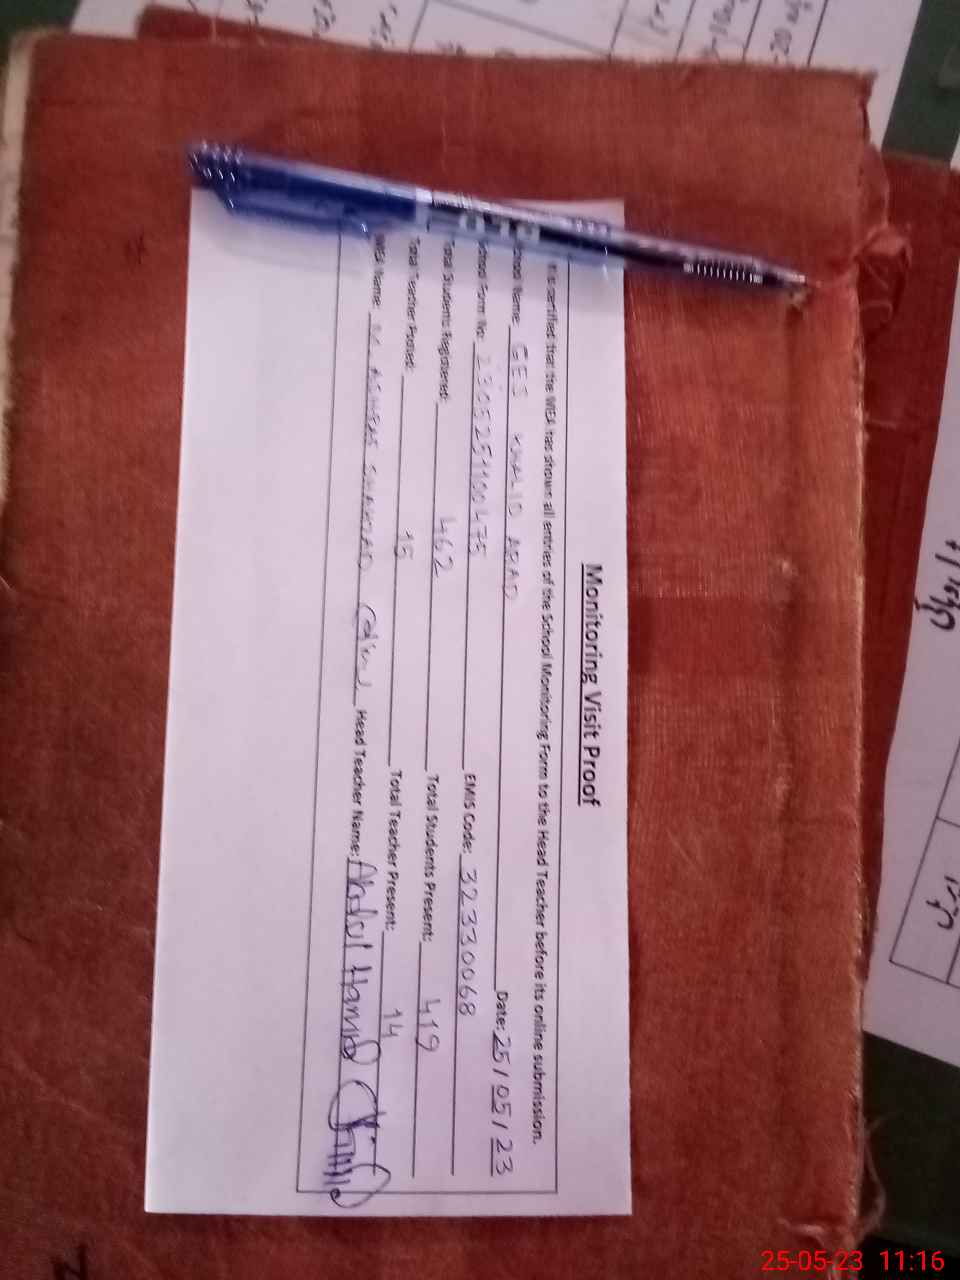 Monitoring Visit Proof
It is certified that the MEA has shown all entries of the School Monitoring Form to the Head Teacher before its online submission.
School Name: GES KHALID ABAD Date: 25/05/23
School Form No: 2305251100475 EMIS Code: 32330068
Total Students Registered: 462 Total Students Present: 419
Total Teacher Posted: 15 Total Teacher Present: 14
MEA Name: Head Teacher Name: Abdul Hamid
25-05-23 11:16